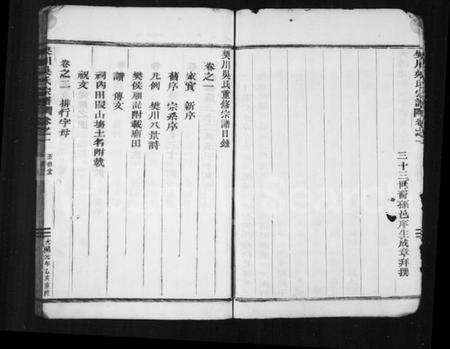 樊川吳氏宗譜
卷之一
三十三世裔孫邑庠生成章拜撰
樊川吳氏重修宗譜目錄
卷之一
家寶 新序
舊序 宗系序
凡例 樊川八景詩
樊侯廟記附載廟田
譜 傳文
祠內田園山塲土名附載
祝文
卷之二 排行字母
樊川吳氏宗譜
卷之一